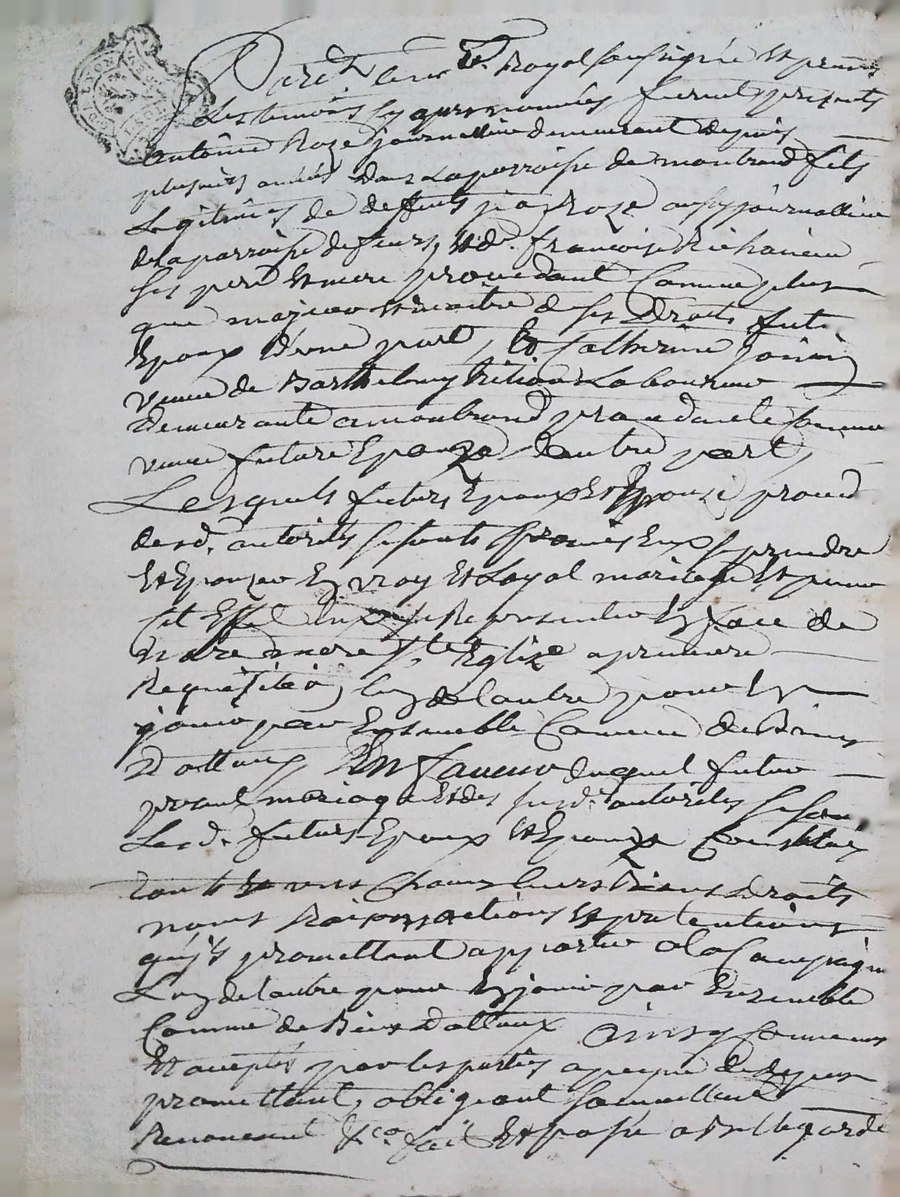 Pard.t le no.re Royal soussigné Et presents
Les temoins cy apres nommés furent presents
Antoine Roze journallier demeurant depuis
plusieurs années dans La parroisse de montbrand fils
Legitime de deffunts jean Roze aussy journallier
de La parroisse de feurs, Et de francoise
ses pere Et mere procedant Comme plus
que majeur Et maitre de ses Droits futur
Epoux d'une part, Et Catherine
veuve de Barthelemy Laboureur
demeurante a montbrand procedante Comme
veuve future Epouze d'autre part,
Lesquels futurs Epoux Et Epouze proced.
desd. autorités se sont promis Eux prendre
Et Epouzer En vray Et Loyal mariage Et pour
cet Effet se Representer En face de
notre mere s.te Eglize a premiere
Requisition L'un de L'autre pour En
jouir par Ensemble Comme de Biens
Dotaux En faveur duquel futur
present mariage Et des susd. autorités se sont
Lesd. futurs Epoux Et Epouze Constitué
tous Et uns Chacuns leurs Biens Droits
noms Raisons actions Et pretentions
qu'ils promettent apporter a la Compagnie
L'un de L'autre pour En jouir par Ensemble
Comme de Biens Dotaux ainsy Convenus
Et acceptés par les parties a peyne de depens
promettant, obligeant soumettant
Renonceant &ca fait Et passé a Bellegarde